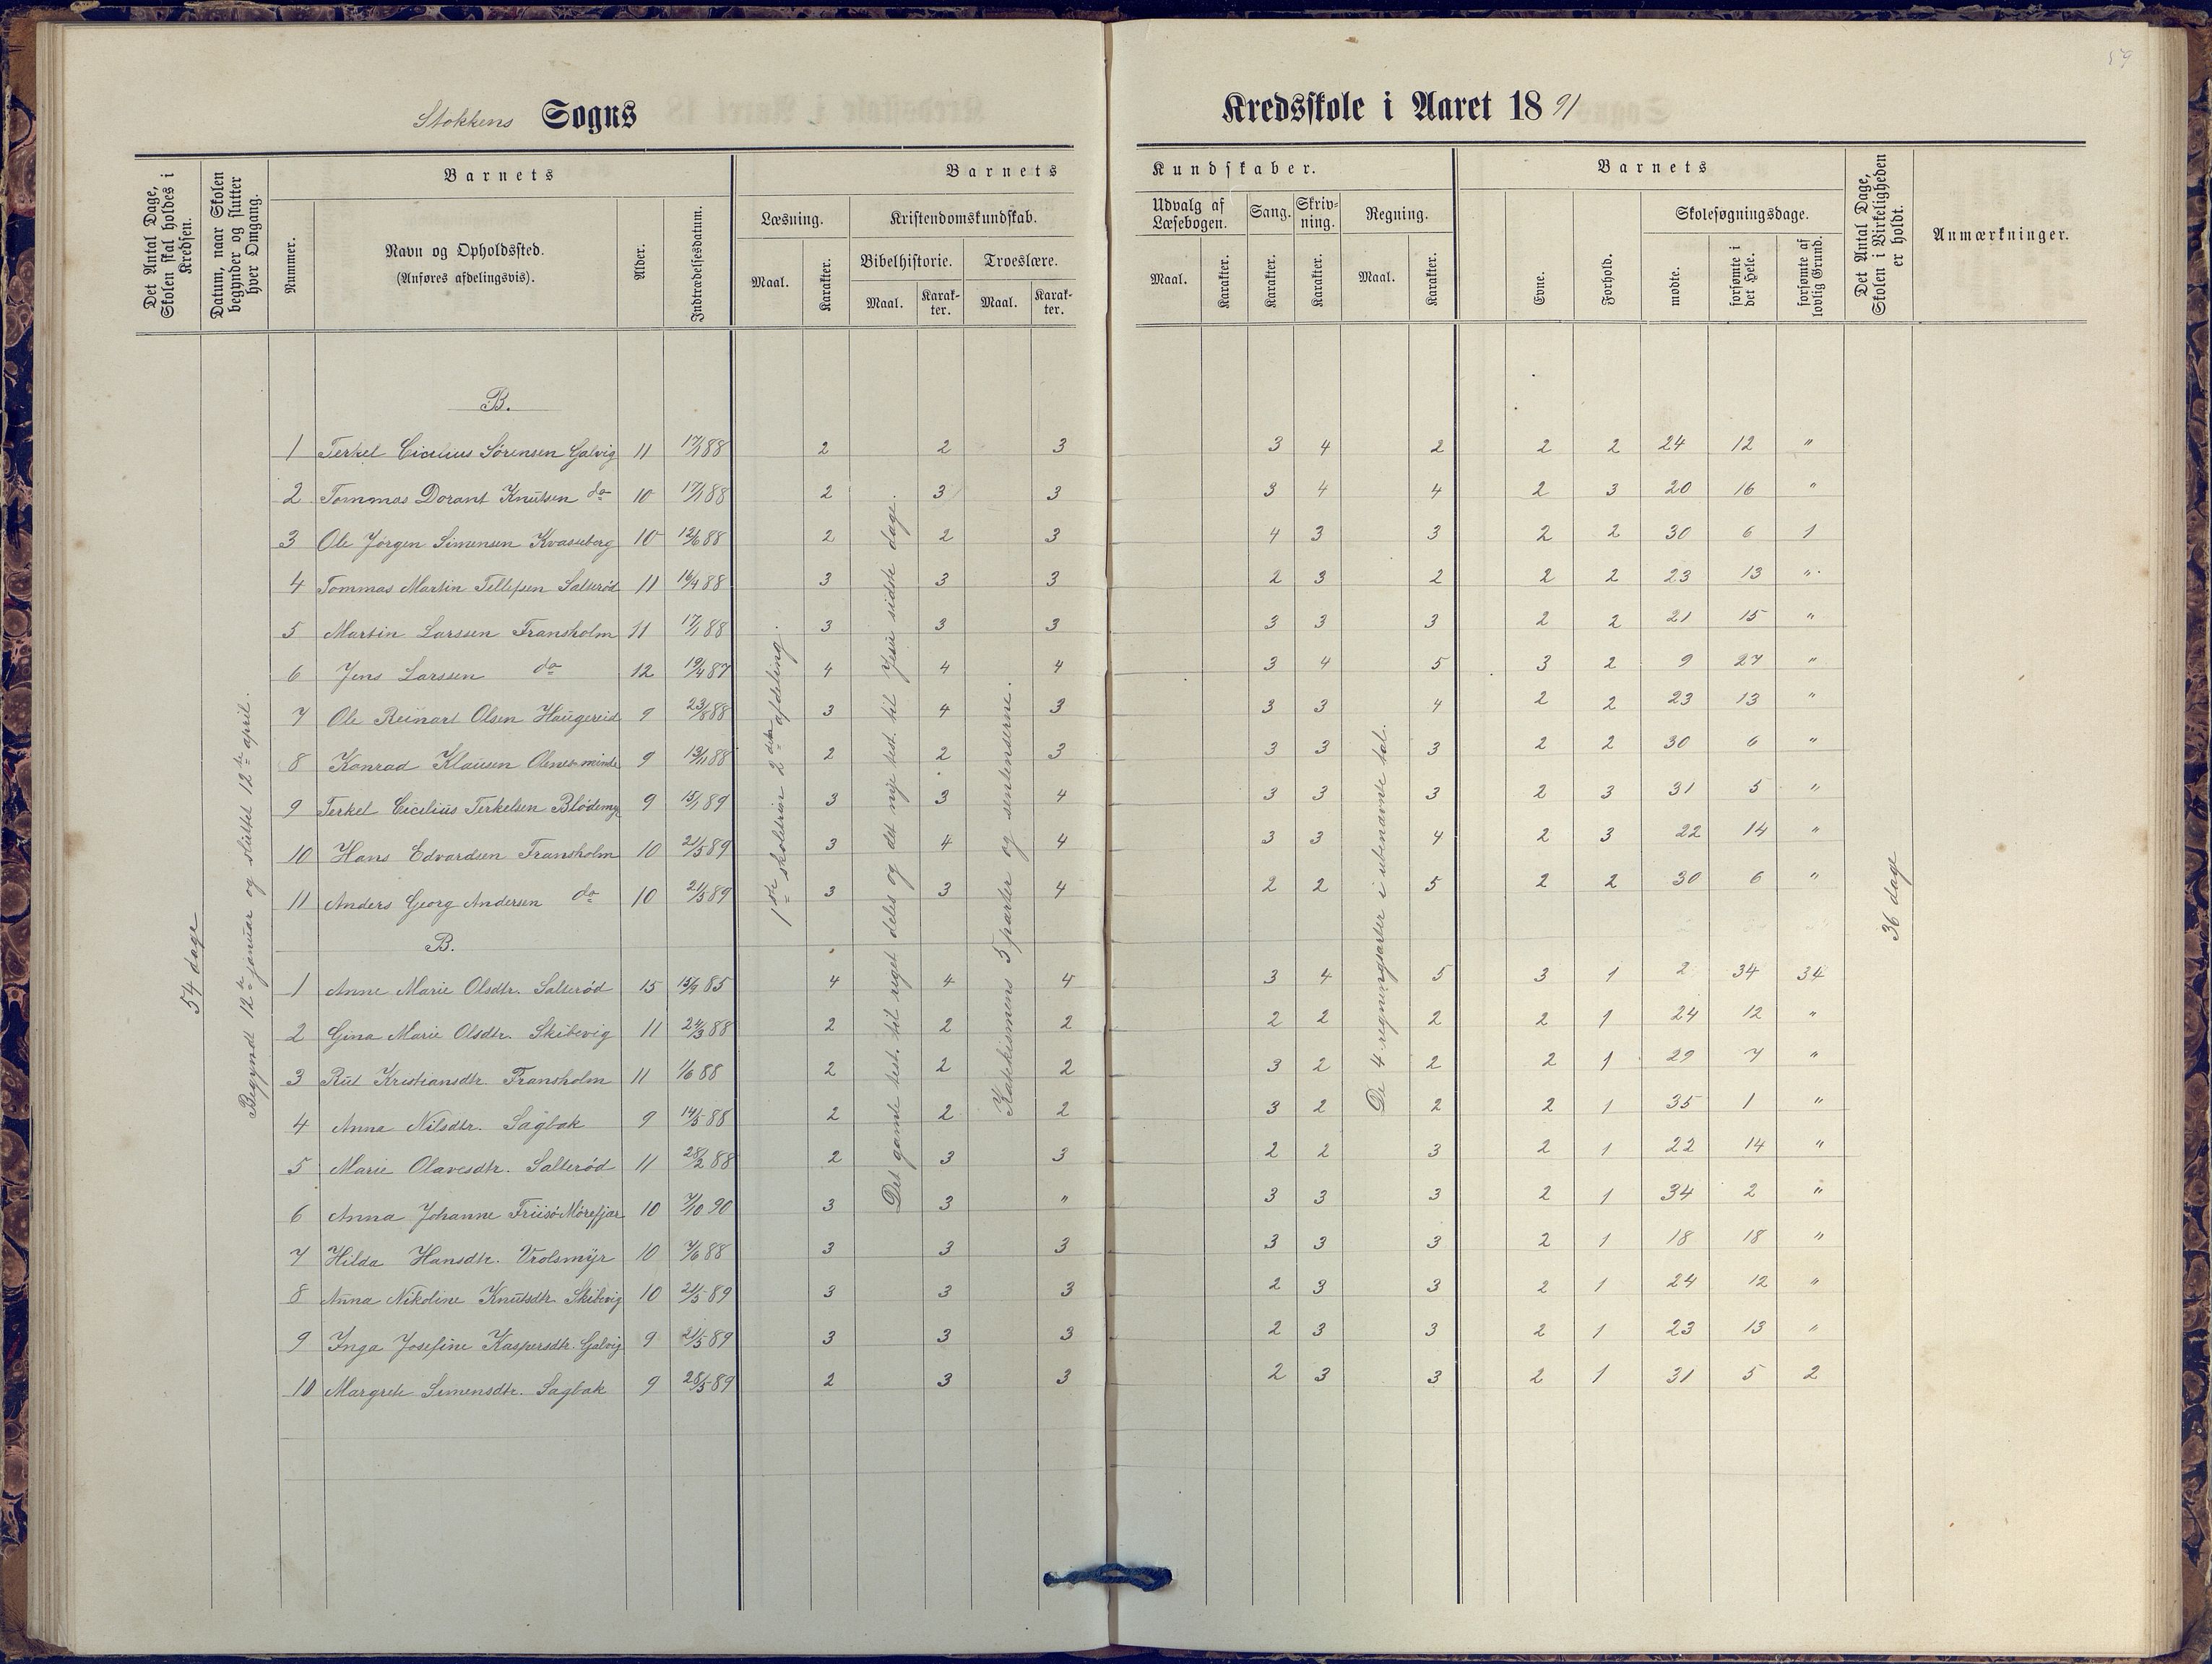 59
Stokkens Sogns Kredsskole i Aaret 1891
Det Antal Dage, Skolen skal holdes i Kredsen.
Datum, naar Skolen begynder og slutter hver Omgang.
Barnets
Nummer.
Navn og Opholdssted.
(Anføres afdelingsvis).
Alder.
Indtrædelsesdatum.
Barnets Kundskaber.
Læsning.
Maal.
Karakter.
Kristendomskundskab.
Bibelhistorie.
Maal.
Karakter.
Troeslære.
Maal.
Karakter.
Udvalg af Læsebogen.
Maal.
Karakter.
Sang.
Karakter.
Skrivning.
Karakter.
Regning.
Maal.
Karakter.
Barnets
Evne.
Forhold.
Skolesøgningsdage.
mødte.
forsømte i det Hele.
forsømte af lovlig Grund.
Det Antal Dage, Skolen i Virkeligheden er holdt.
Anmærkninger.
54 dage
Begyndt 12te januar og sluttet 12te april.
1ste skoletrin 2den afdeling.
Det gamle test. til riget deles og det nye test. til Jesu sidste dage.
Katekismens 5 parter og sentenserne.
De 4 regningsarter i ubenævnte tal.
36 dage
B.
1 Terkel Cicilius Sørensen Galvig 11 17/1 88 2 2 3 3 4 2 2 2 24 12 "
2 Tommas Dorant Knutsen do 10 17/1 88 2 3 3 3 4 4 2 3 20 16 "
3 Ole Jørgen Simensen Kvaseberg 10 12/6 88 2 2 3 4 3 3 2 2 30 6 1
4 Tommas Martin Tellefsen Salterød 11 16/4 88 3 3 3 2 3 2 2 2 23 13 "
5 Martin Larssen Fransholm 11 17/1 88 3 3 3 3 3 3 2 2 21 15 "
6 Jens Larssen do 12 19/4 87 4 4 4 3 4 5 3 2 9 27 "
7 Ole Reinart Olsen Haugereid 9 23/8 88 3 4 3 3 3 4 2 2 23 13 "
8 Konrad Klausen Olenesminde 9 19/11 88 2 2 3 3 3 3 2 2 30 6 "
9 Terkel Cicilius Terkelsen Blødemyr 9 15/1 89 3 3 4 3 3 3 2 3 31 5 "
10 Hans Edvardsen Fransholm 10 21/5 89 3 4 4 3 3 4 2 3 22 14 "
11 Anders Georg Andersen do 10 21/5 89 3 3 4 2 2 5 2 2 30 6 "
B.
1 Anne Marie Olsdtr. Salterød 15 15/9 85 4 4 4 3 4 5 3 1 2 34 34
2 Gina Marie Olsdtr. Skibevig 11 24/3 88 2 2 2 2 2 2 2 1 24 12 "
3 Rut Kristiansdtr. Fransholm 11 1/6 88 2 2 2 3 2 2 2 1 29 7 "
4 Anna Nilsdtr. Sagbak 9 14/5 88 2 2 2 3 2 2 2 1 35 1 "
5 Marie Olavesdtr. Salterød 11 28/2 88 2 3 3 2 2 3 2 1 22 14 "
6 Anna Johanne Friisø Mørefjær 10 7/10 90 3 3 " 3 3 3 2 1 34 2 "
7 Hilda Hansdtr. Vrolsmyr 10 7/6 88 3 3 3 3 3 3 2 1 18 18 "
8 Anna Nikoline Knutsdtr. Skibevig 10 21/5 89 3 3 3 2 3 3 2 1 24 12 "
9 Inga Josefine Kaspersdtr. Galvig 9 21/5 89 3 3 3 2 3 3 2 1 23 13 "
10 Margrete Simensdtr. Sagbak 9 28/5 89 2 3 3 2 3 3 2 1 31 5 2